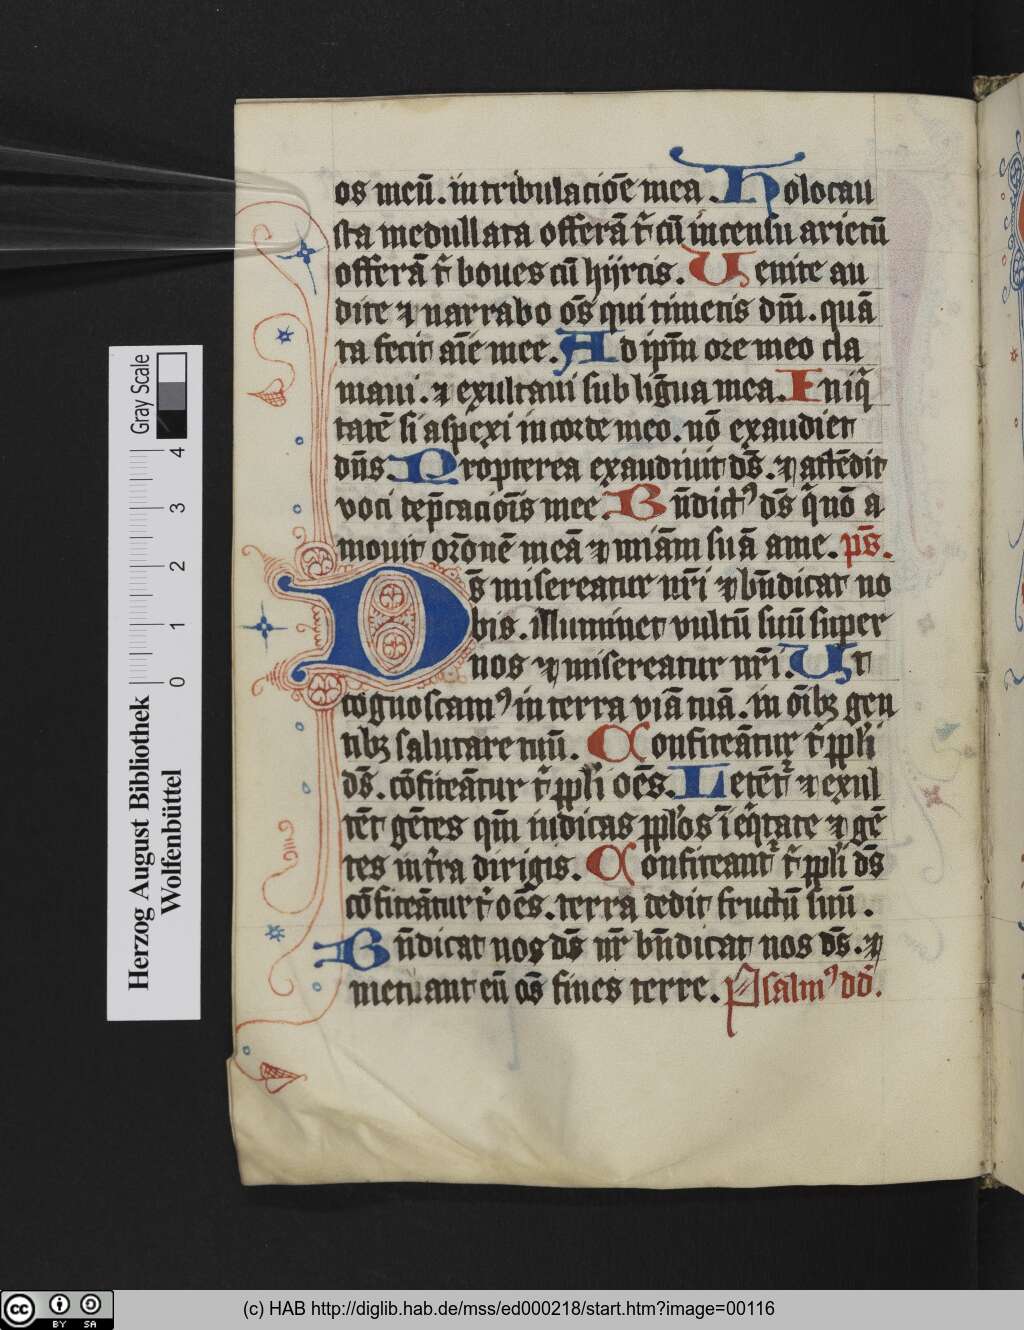 os meū. in tribulacioē mea. Holocau
sta medullata offerā t̄ cū incensu arietū
offerā t̄ boues cū hyrcis. Uenite au
dite ⁊ narrabo oēs qui timetis dm̄. quā
ta fecit aīe mee. Ad ip̄m ore meo cla
maui. ⁊ exultaui sub līgua mea. Iniq̄
tatē si aspexi in corde meo. nō exaudiet
dn̄s Propterea exaudiuit ds̄. ⁊ attēdit
voci dep̄cacioīs mee. Bn̄dictꝰ ds̄ q̄ nō a
mouit orōnē meā ⁊ miām suā a me. ps̄.
Ds̄ misereatur nr̄i ⁊ bn̄dicat no
bis. illuminet vultū suū super
nos ⁊ misereatur nr̄i. Ut
cognoscamꝰ in terra viā tuā. in oībꝫ gen
tibꝫ salutare tuū. Confiteātur t̄ ppl̄i
ds̄. cōfiteātur t̄ ppl̄i oēs. Letēt̄ ⁊ exul
tēt gētes qm̄ iudicas ppl̄os ī eq̄tate ⁊ gē
tes in t̄ra dirigis. Confiteant̄ t̄ ppl̄i ds̄
cōfiteātur t̄ oēs. terra dedit fructū suū.
Bn̄dicat nos ds̄ nr̄ bn̄dicat nos ds̄. ⁊
metuant eū oēs fines terre. Psalmꝰ dd̄.
Herzog August Bibliothek
Wolfenbüttel
0 1 2 3 4
Gray Scale
cc BY SA
(c) HAB http://diglib.hab.de/mss/ed000218/start.htm?image=00116